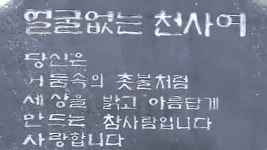 얼굴없는 천사여
당신은
어둠속의 촛불처럼
세상을 밝고 아름답게
만드는 참사람입니다
사랑합니다